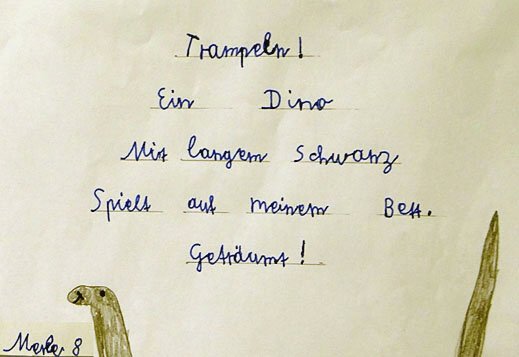 Trampeln!
Ein Dino
Mit langem Schwanz
Spielt auf meinem Bett.
Geträumt!
Merle 8